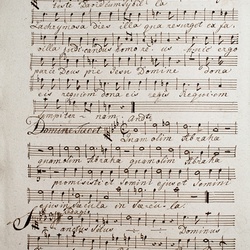 teste David cum Sybil la
Lachrymosa dies illa qua resurget ex fa
villa judicandus homo re us huic ergo
parce Deus pie Jesu Domine dona
eis requiem dona eis Requiem
sempiter nam
Domine Quam olim Abrahæ
quam olim Abrahæ quam olim Abrahæ
promisisti et Semini ejus et Semini
ejus in Sæcula in Sæcula.
Adagio
Sanctus Dominus